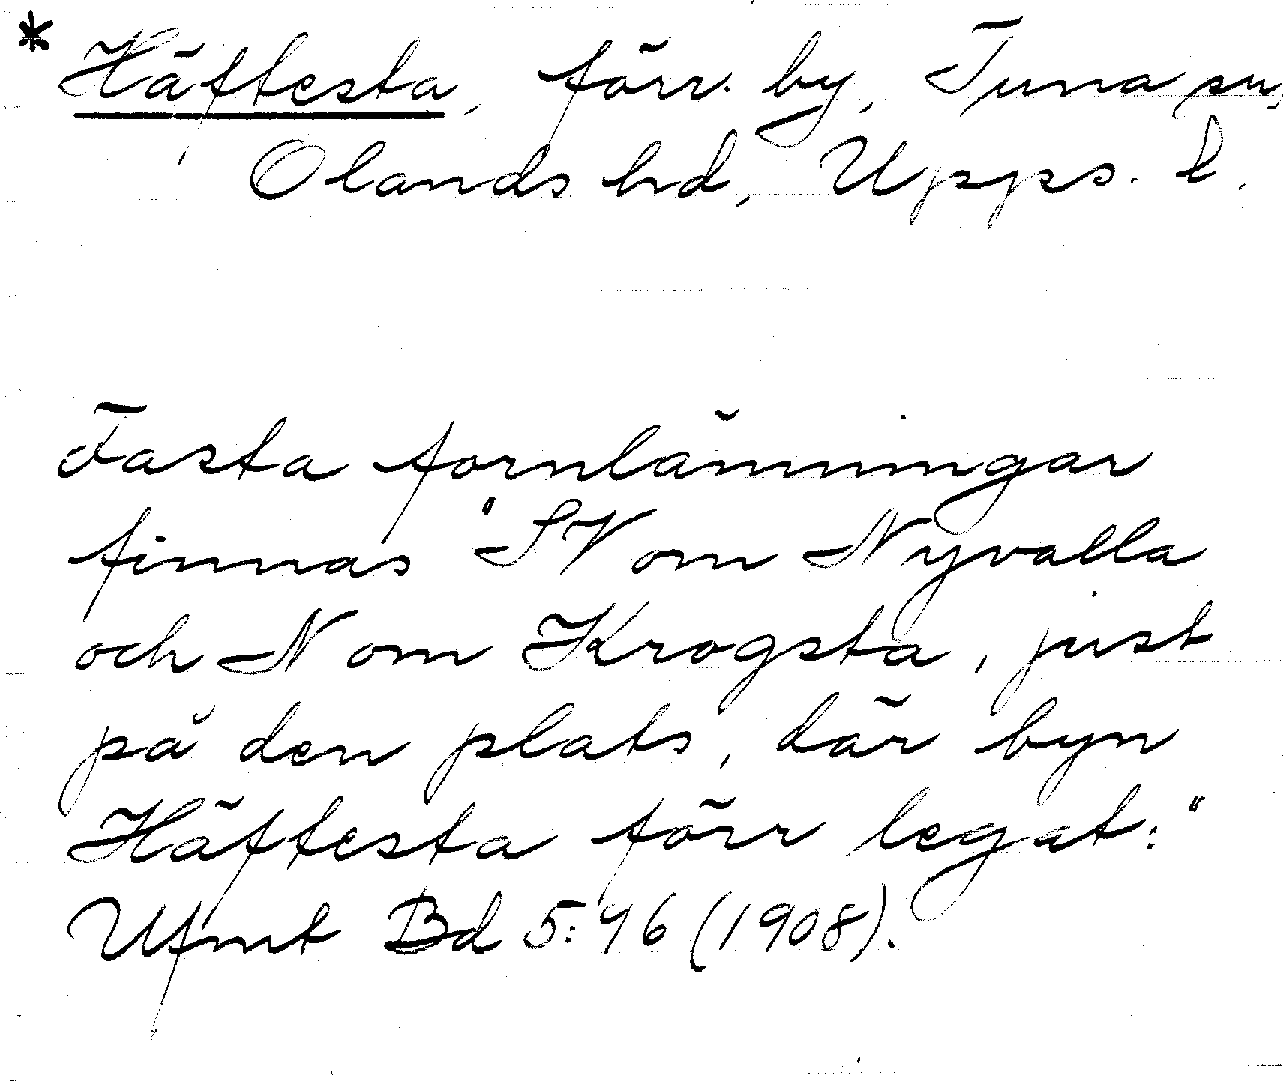 * Häftesta, förr. by, Tuna sn,
Olands hd, Upps. l.
Fasta fornlämningar
finnas "SV om Nyvalla
och N om Krogsta, just
på den plats, där byn
Häftesta förr legat:"
Ufmt Bd 5:46 (1908).